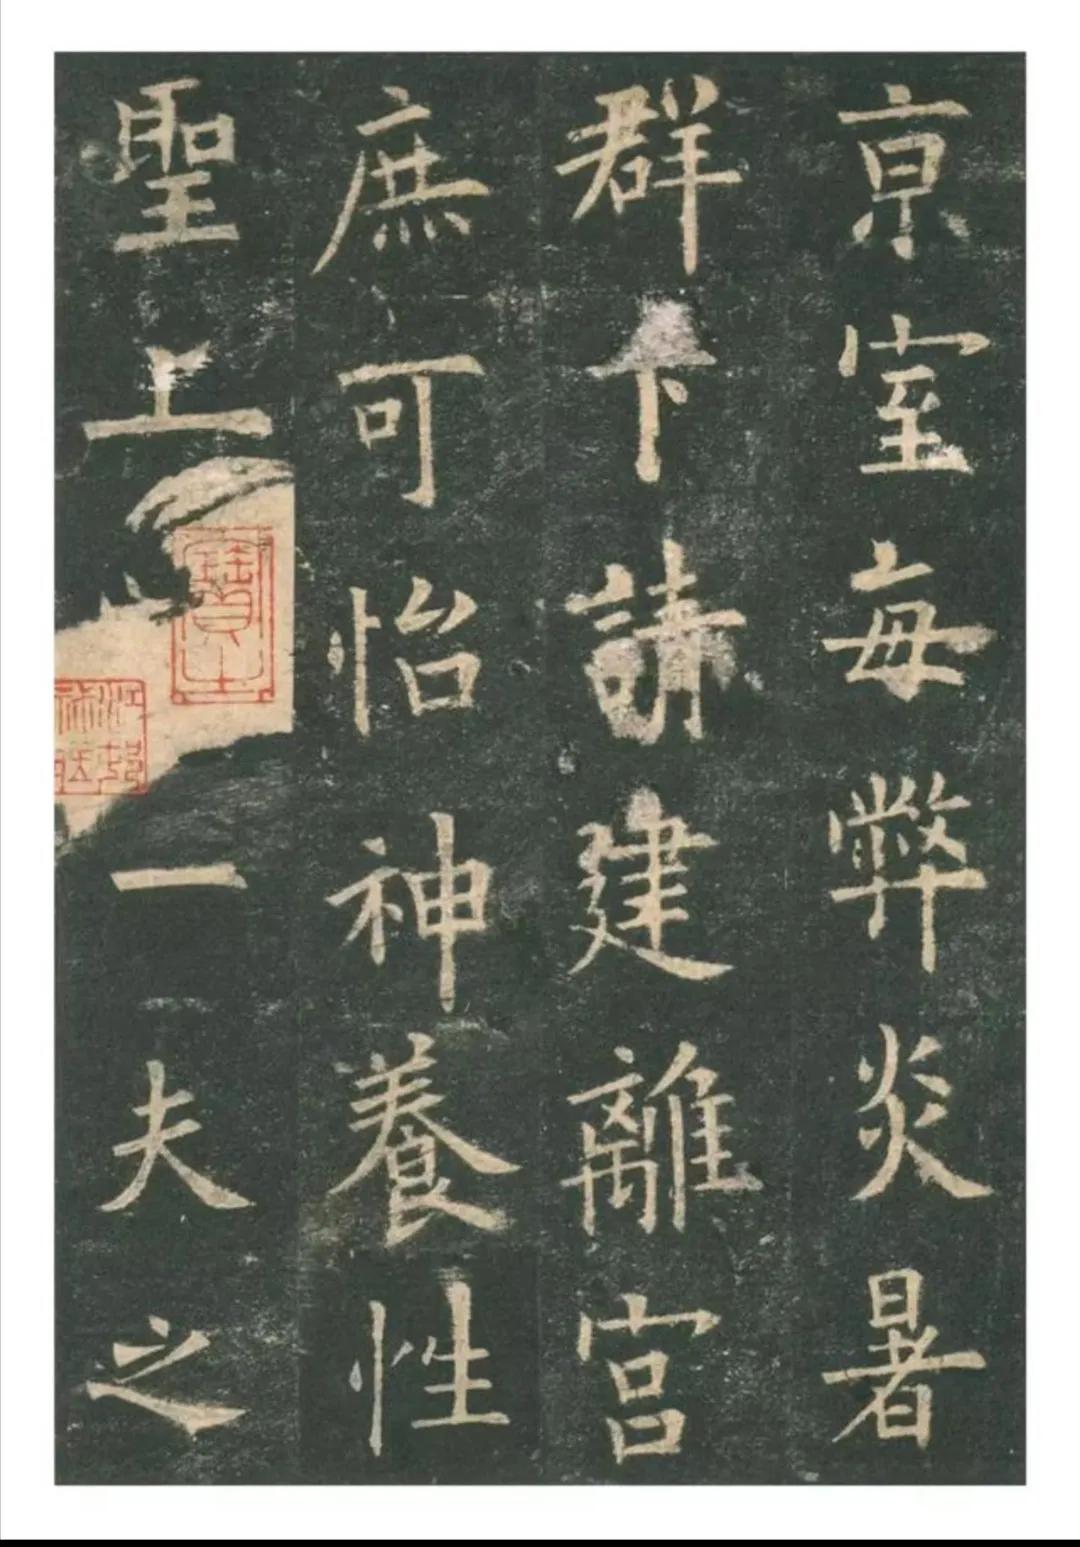 亰室每弊炎暑
群下請建離宮
庶可怡神養性
聖上一夫之